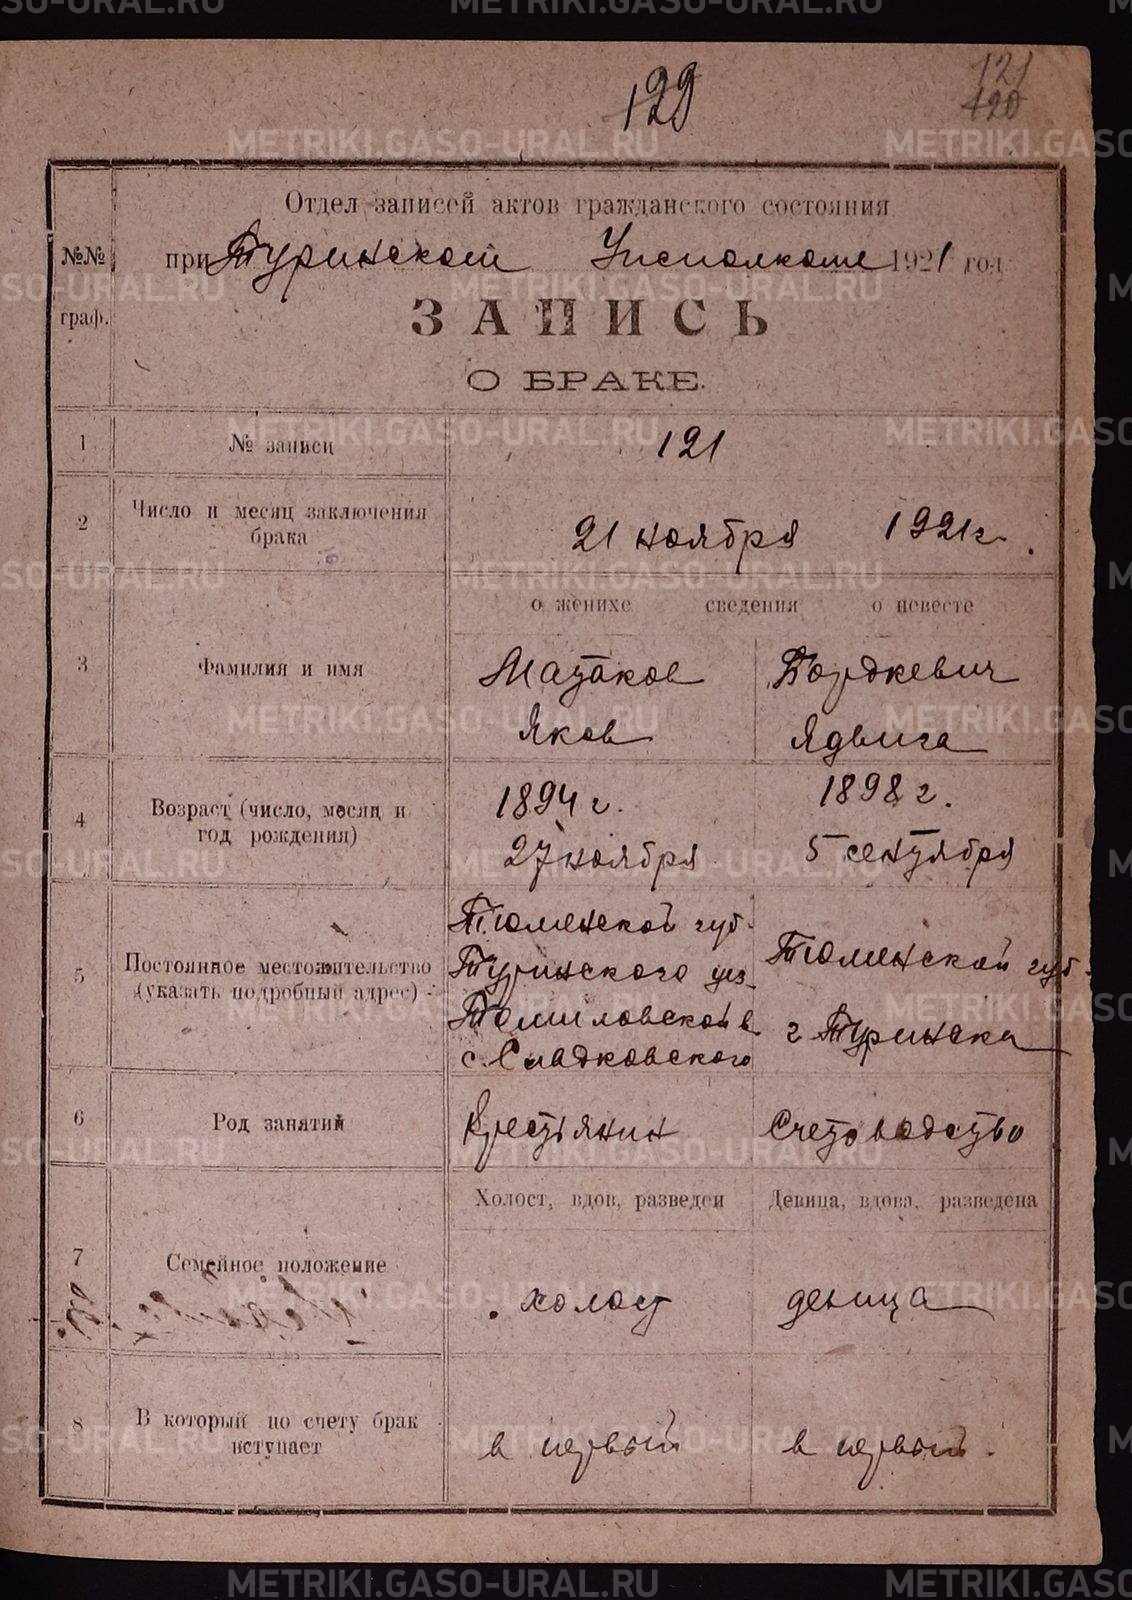 129
121
120
Отдел записей актов гражданского состояния
№№ при Туринском Исполкоме 1921 год
граф.
ЗАПИСЬ
О БРАКЕ.
1 № записи 121
2 Число и месяц заключения брака 21 ноября 1921 г.
о женихе сведения о невесте
3 Фамилия и имя
Мазаков Бордкевич
Яков Ядвига
4 Возраст (число, месяц и год рождения)
1894 г. 1898 г.
27 ноября 5 сентября
5 Постоянное местожительство (указать подробный адрес)
Тюменской губ. Тюменской губ.
Туринского уез.
Томиловской в. г Туринска
с. Сладковского
6 Род занятий Крестьянин Счетоводство
Холост, вдов, разведен Девица, вдова, разведена
7 Семейное положение холост девица
8 В который по счету брак вступает в первый в первый.
METRIKI.GASO-URAL.RU